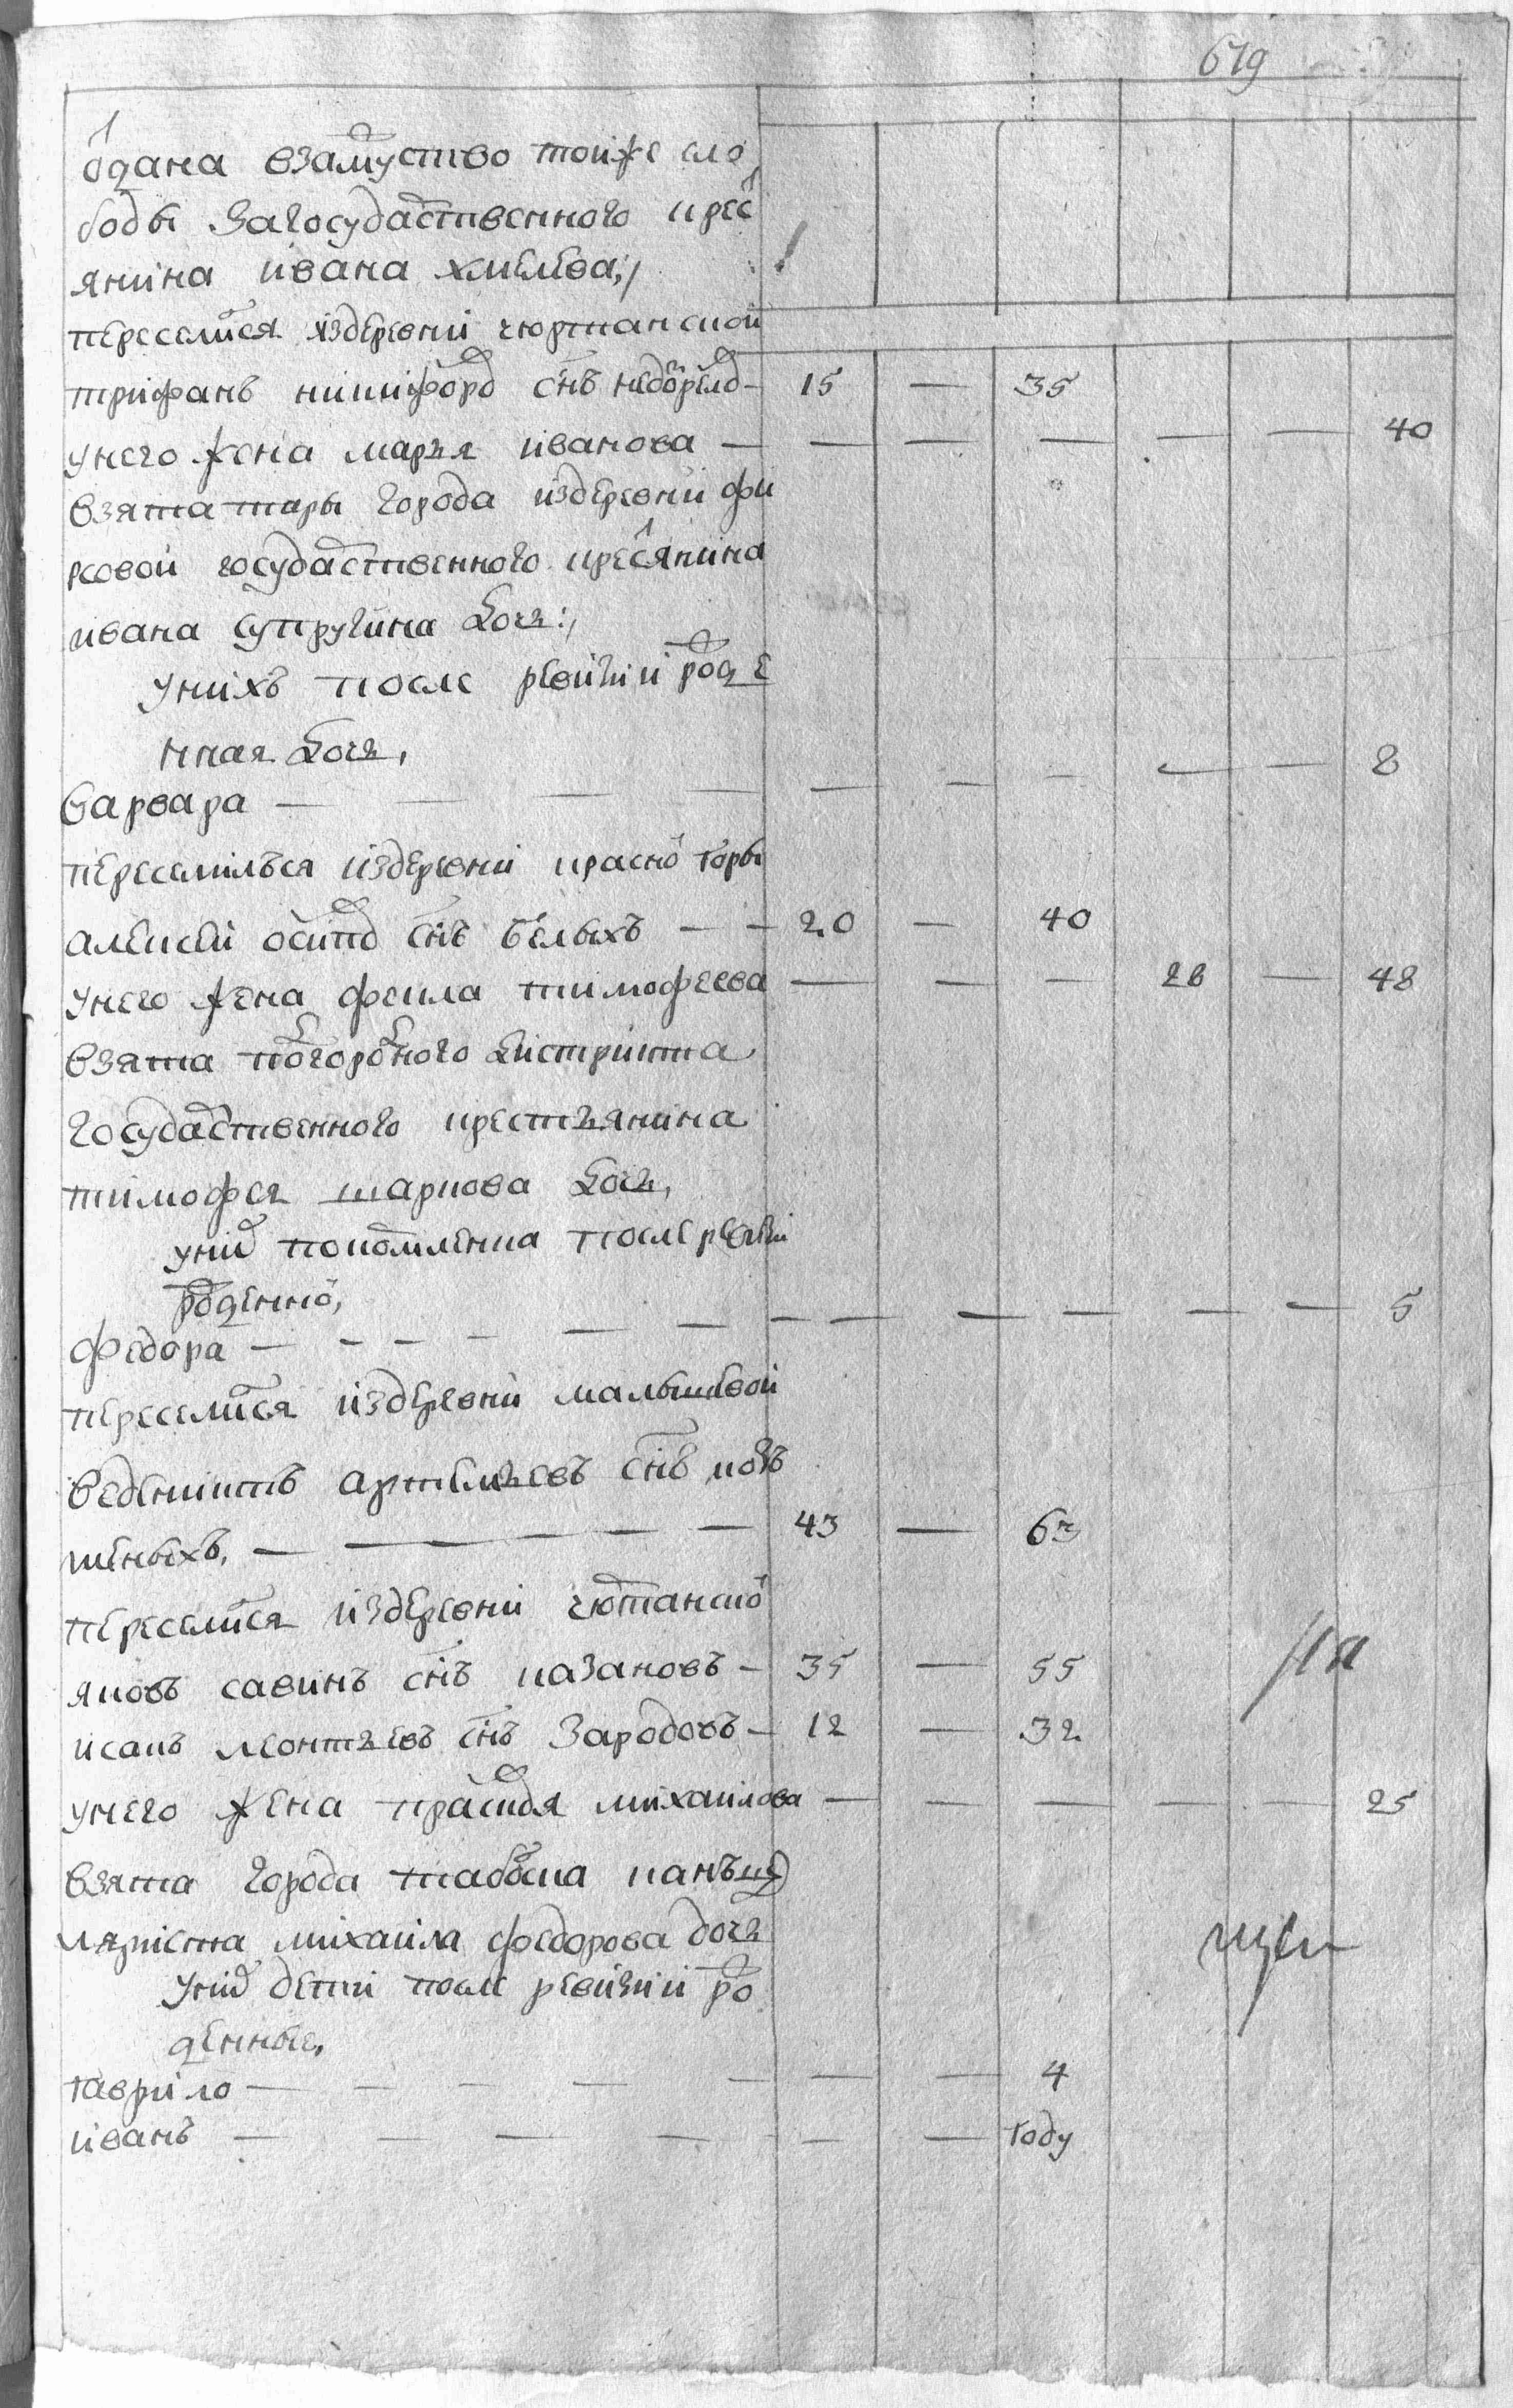 679
одана взамуство тоиже сло
боды загосударственного крес
янина ивана хмелева
переселился издеревни чюртанской
трифанъ никифоровъ снъ 15 — 35
унего жена марья иванова — — — — — — 40
взята тары города издеревни фи
рсовой государственного кресянина
ивана супругина дочь
унихъ после ревизии роже
нная дочь,
варвара — — — — — — — — — 8
переселился издеревни красной горы
алексеи осиповъ снъ белыхъ — — 20 — 40
унего жена фекла тимофеева — — — 28 — 48
взята погорного дистрикта
государственного крестьянина
тимофея шаркова дочь,
унихъ после ревизи
рожденной,
федора — — — — — — — — — — — — 5
переселился издеревни малышевой
ведениктъ артемьевъ снъ
шеныхъ, — — — — — 43 — 63
переселился издеревни чюртанской
яковъ савинъ снъ казаковъ — 35 — 55
исакъ леонтьевъ снъ зародовъ — 12 — 32
унего жена прасковья михаилова — — — — — 25
взята города табольска канъце
ляриста михаила федорова дочь
унихъ дети после ревизии ро
жденные,
гаврило — — — — — — — 4
иванъ — — — — — — году